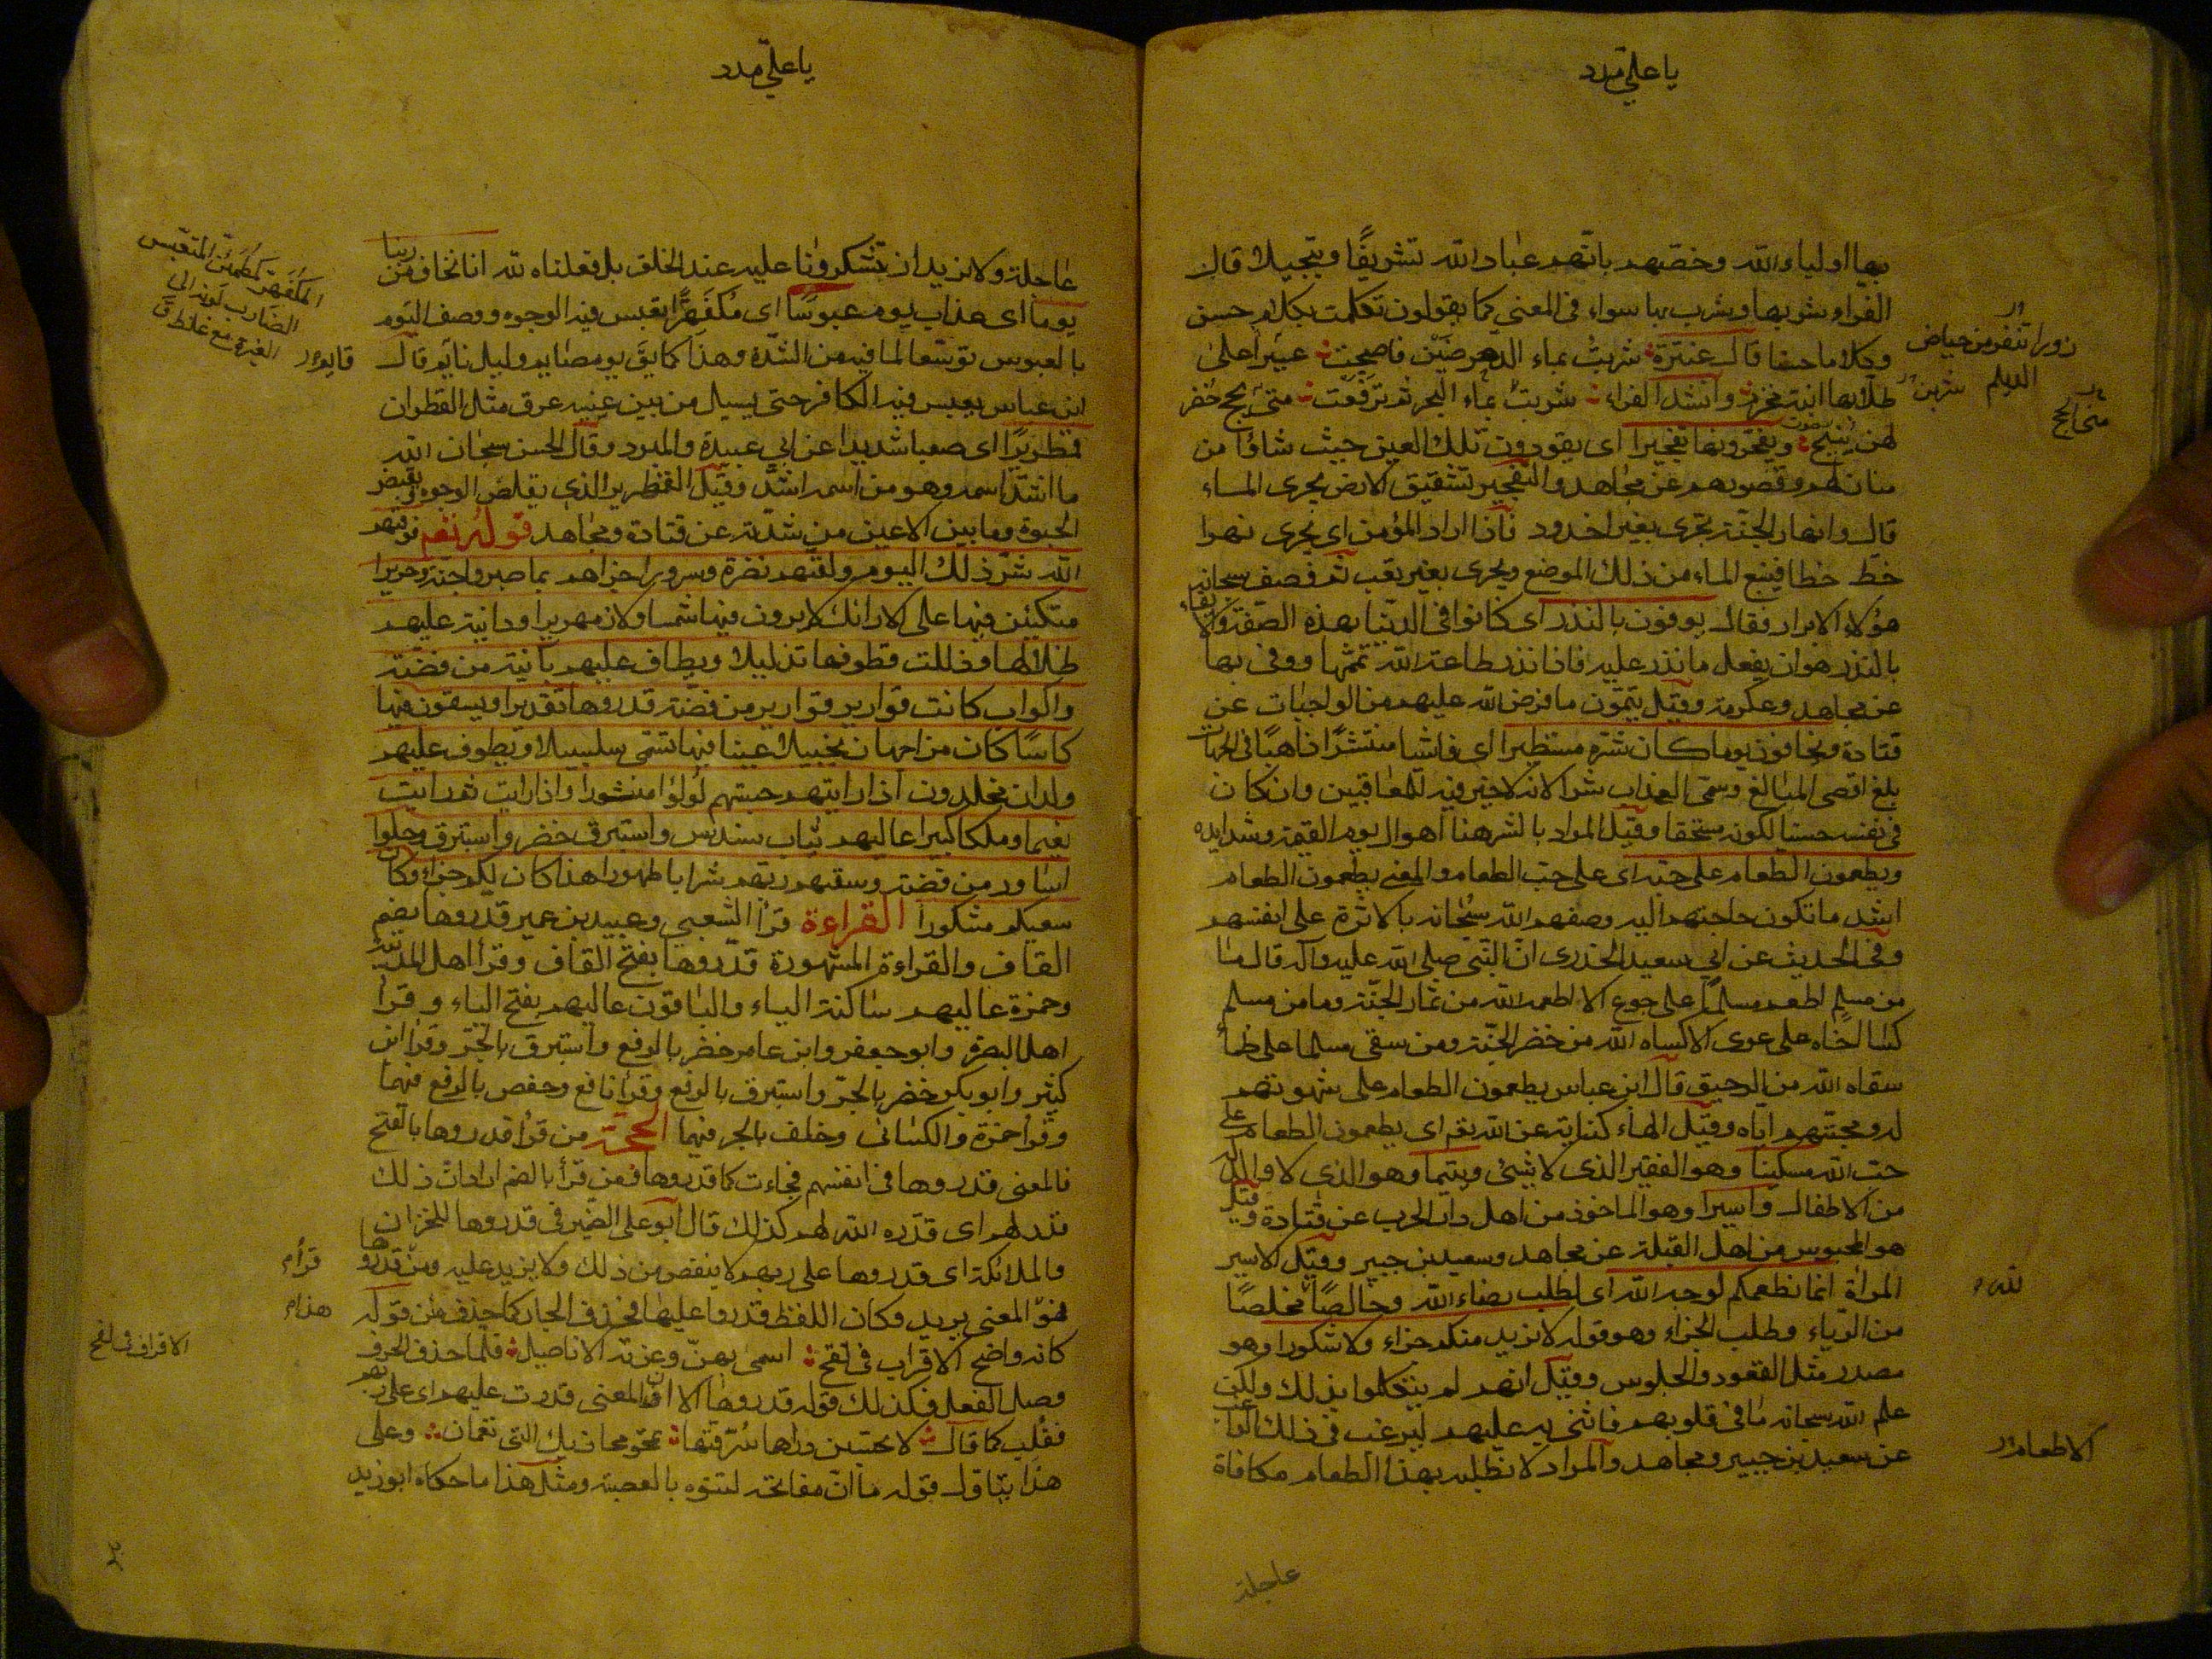 يا علي مدد
بها اولياء الله وخصهم بانهم عباد الله تشريفا وتبجيلا قال
الفراء وشربها وشرب بها سواء في المعنى كما يقولون تكلمت بكلام حسن
وكلاما حسنا قال عنترة شربت بماء الدحرضين فاصبحت عسيرا على
طلابها ابنة مخرم وانشد الفراء شربت بماء البحر ثم ترفعت متى لجج خضر
لهن نئيج ويفجرونها تفجيرا اى يقودون تلك العين حيث شاؤا من
منازلهم وقصورهم عن مجاهد والتفجير تشقيق الارض بجرى الماء
قال وانهار الجنة تجرى بغير اخدود فاذا اراد المؤمن اى يجرى نهرا
خط خطا فينبع الماء من ذلك الموضع ويجرى بغير تعب ثم وصف سبحانه
هؤلاء الابرار فقال يوفون بالنذر اى كانوا في الدنيا بهذه الصفة والايفاء
بالنذر هو ان يفعل ما نذر عليه فاذا نذر طاعة الله تممها ووفى بها
عن مجاهد وعكرمة وقيل يتمون ما فرض الله عليهم من الواجبات عن
قتادة ويخافون يوما كان شره مستطيرا اى فاشيا منتشرا ذاهبا في الجهات
بلغ اقصى المبالغ وسمى العذاب شرا لانه لا خير فيه للمعاقبين وان كان
في نفسه حسنا لكونه مستحقا وقيل المراد بالشر هنا اهوال يوم القيمة وشدايده
ويطعمون الطعام على حبه اى على حب الطعام والمعنى يطعمون الطعام
اشد ما تكون حاجتهم اليه وصفهم الله سبحانه بالاثرة على انفسهم
وفي الحديث عن ابي سعيد الخدرى ان النبي صلى الله عليه وآله قال ما
من مسلم اطعم مسلما على جوع الا اطعمه الله من ثمار الجنة وما من مسلم
كسا اخاه على عرى الا كساه الله من خضر الجنة ومن سقى مسلما على ظمأ
سقاه الله من الرحيق قال ابن عباس يطعمون الطعام على شهوتهم
له ومحبتهم اياه وقيل الهاء كناية عن الله تعم اى يطعمون الطعام على
حب الله مسكينا وهو الفقير الذى لا شئ له ويتيما وهو الذى لا والد له
من الاطفال واسيرا وهو الماخوذ من اهل دار الحرب عن قتادة وقيل
هو المحبوس من اهل القبلة عن مجاهد وسعيد بن جبير وقيل الاسير
المراة انما نطعمكم لوجه الله اى لطلب رضاء الله وخالصا مخلصا
من الرياء وطلب الجزاء وهو قوله لا نريد منكم جزاء ولا شكورا وهو
مصدر مثل القعود والجلوس وقيل انهم لم يتكلموا بذلك ولكن
علم الله سبحانه ما في قلوبهم فاثنى به عليهم ليرغب في ذلك الراغب
عن سعيد بن جبير ومجاهد والمراد لا نطلب بهذا الطعام مكافاة
زوراء تنفر من حياض
الديلم
شربن
متى لجج
لله
الاطعام
عاجلة
يا علي مدد
عاجلة ولا نريد ان تشكرونا عليه عند الخلق بل فعلناه لله انا نخاف من ربنا
يوما اى عذاب يوم عبوسا اى مكفهرا تعبس فيه الوجوه ووصف اليوم
بالعبوس توسعا لما فيه من الشدة وهذا كما يق يوم صايم وليل نايم قال
ابن عباس يعبس فيه الكافر حتى يسيل من بين عينيه عرق مثل القطران
قمطريرا اى صعبا شديدا عن ابي عبيدة والمبرد وقال الحسن سبحان الله
ما اشد اسمه وهو من اسمه اشد وقيل القمطرير الذى يقلص الوجوه ويقبض
الجبوة وما بين الاعين من شدته عن قتادة ومجاهد قوله تعم فوقيهم
الله شر ذلك اليوم ولقيهم نضرة وسرورا وجزاهم بما صبروا جنة وحريرا
متكئين فيها على الارائك لا يرون فيها شمسا ولا زمهريرا ودانية عليهم
ظلالها وذللت قطوفها تذليلا ويطاف عليهم بآنية من فضة
واكواب كانت قوارير قوارير من فضة قدروها تقديرا ويسقون فيها
كاسا كان مزاجها زنجبيلا عينا فيها تسمى سلسبيلا ويطوف عليهم
ولدان مخلدون اذا رايتهم حسبتهم لؤلؤا منثورا واذا رايت ثم رايت
نعيما وملكا كبيرا عاليهم ثياب سندس واستبرق خضر واستبرق وحلوا
اساور من فضة وسقيهم ربهم شرابا طهورا هذا كان لكم جزاء وكان
سعيكم مشكورا القراءة قرأ الشعبي وعبيد بن عمير قدروها بضم
القاف والقراءة المشهورة قدروها بفتح القاف وقرأ اهل المدينة
وحمزة عاليهم ساكنة الياء والباقون عاليهم بفتح الياء وقرأ
اهل البصرة وابو جعفر وابن عامر خضر بالرفع واستبرق بالجر وقرأ ابن
كثير وابو بكر خضر بالجر واستبرق بالرفع وقرأ نافع وحفص بالرفع فيهما
وقرأ حمزة والكسائى وخلف بالجر فيهما الحجة من قرأ قدروها بالفتح
فالمعنى قدروها في انفسهم فجاءت كما قدروها ومن قرأ بالضم اراد ان ذلك
قدر لهم اى قدره الله لهم كذلك قال ابو على الضمير في قدروها للخزان
والملائكة اى قدروها على ربهم لا ينقص من ذلك ولا يزيد عليه ومن قدروها
فهو المعنى يريد وكان اللفظ قدروا عليها فحذف الجار كما حذف من قوله
كانه واضح الاقراب في لقح اسمى بهن وعزته الاناصيل فلما حذف الحرف
وصل الفعل فكذلك قوله قدروها الا ان المعنى قدرت عليهم اى على ربهم
فقلب كما قال لا تحسبن دراها سرقتها تمحو مخازيك التي نعمان وعلى
هذا يتاول قوله ما ان مفاتحه لتنوء بالعصبة ومثل هذا ما حكاه ابو زيد
المكفهر كمطمئن المتعبس
الضارب لونه الى
الغبرة مع غلظ ق
قرأ م
هذا م
الاقراف في لقح